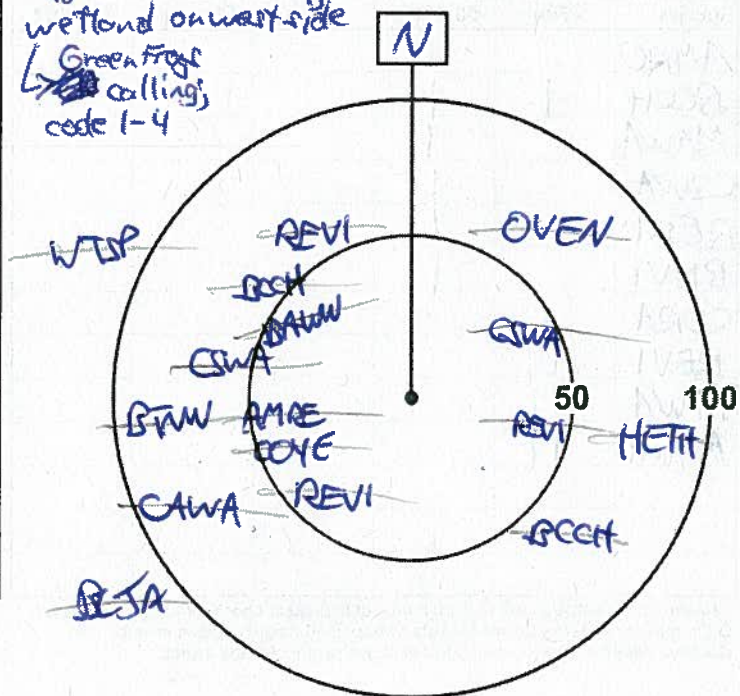 wetland on west side
Green Frogs
calling;
code 1-4
N
WTSP
REVI
OVEN
BCCH
BAWW
CSWA
CSWA
50
100
BTNW
AMRE
REVI
HETH
COYE
CAWA
REVI
BCCH
BLJA